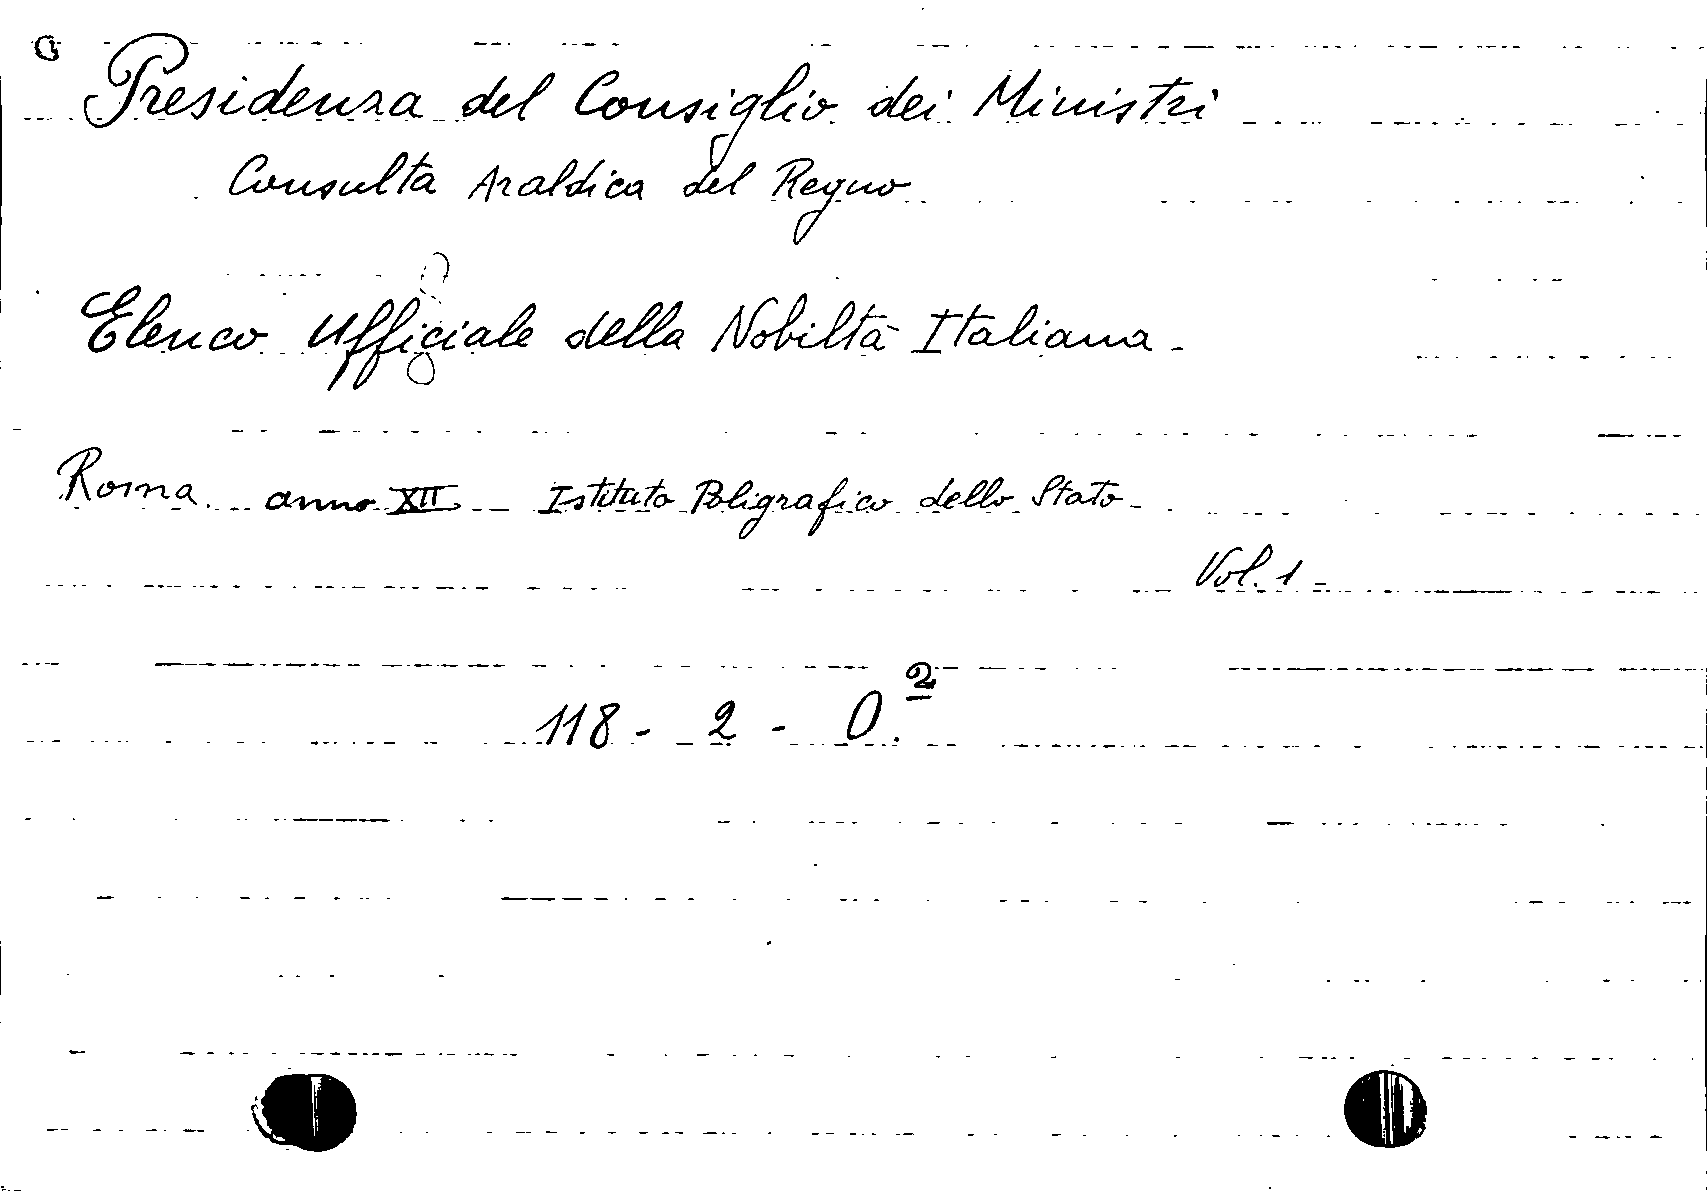 Presidenza del Consiglio dei Ministri
Consulta Araldica del Regno
Elenco Ufficiale della Nobiltà Italiana -
Roma anno XII - Istituto Poligrafico dello Stato -
Vol. 1 -
118 - 2 - O.2